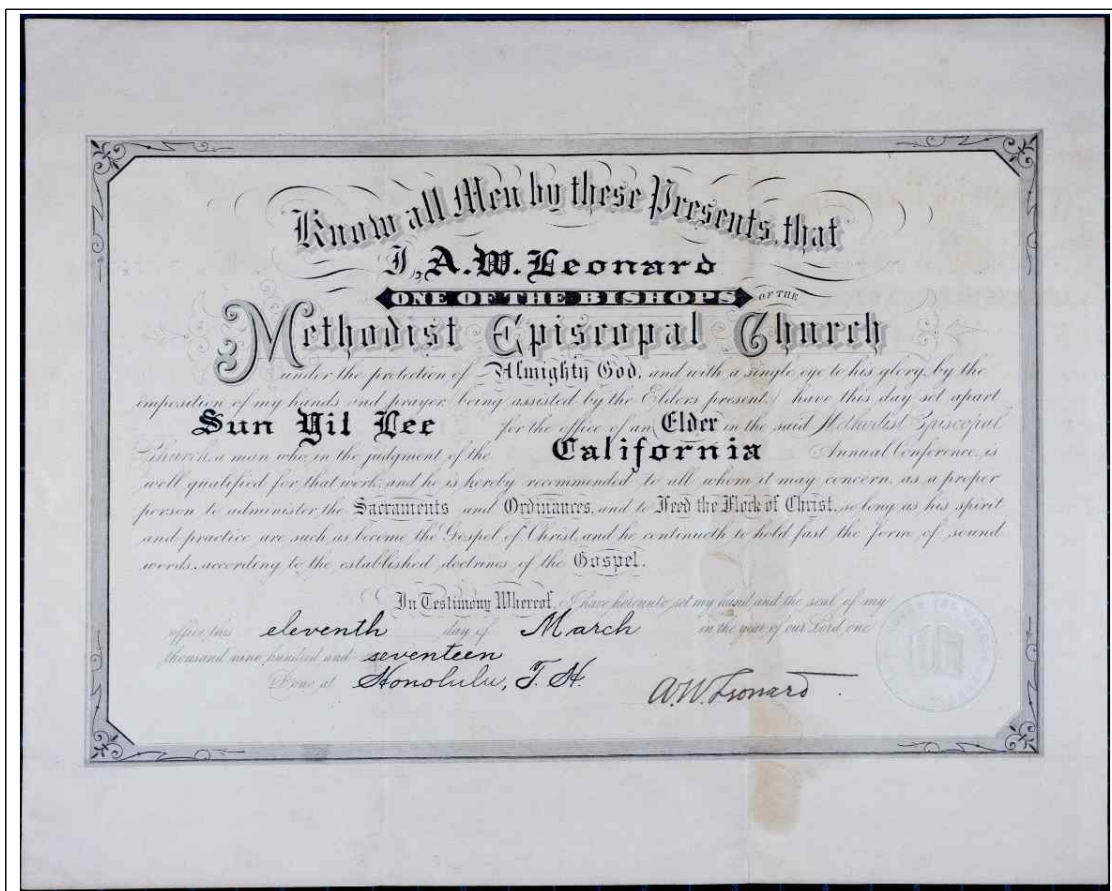 Know all Men by these Presents, that
I, A. W. Leonard
ONE OF THE BISHOPS OF THE
Methodist Episcopal Church
under the protection of Almighty God, and with a single eye to his glory, by the
imposition of my hands and prayer, being assisted by the Elders present, I have this day set apart
Sun Yil Lee for the office of an Elder in the said Methodist Episcopal
Church, a man who, in the judgment of the California Annual Conference, is
well qualified for that work; and he is hereby recommended to all whom it may concern, as a proper
person to administer the Sacraments and Ordinances, and to Feed the Flock of Christ, so long as his spirit
and practice are such as become the Gospel of Christ, and he continueth to hold fast the form of sound
words, according to the established doctrines of the Gospel.
In Testimony Whereof, I have hereunto set my hand and the seal of my
office this eleventh day of March in the year of our Lord, one
thousand nine hundred and seventeen
Done at Honolulu, T. H.
A. W. Leonard